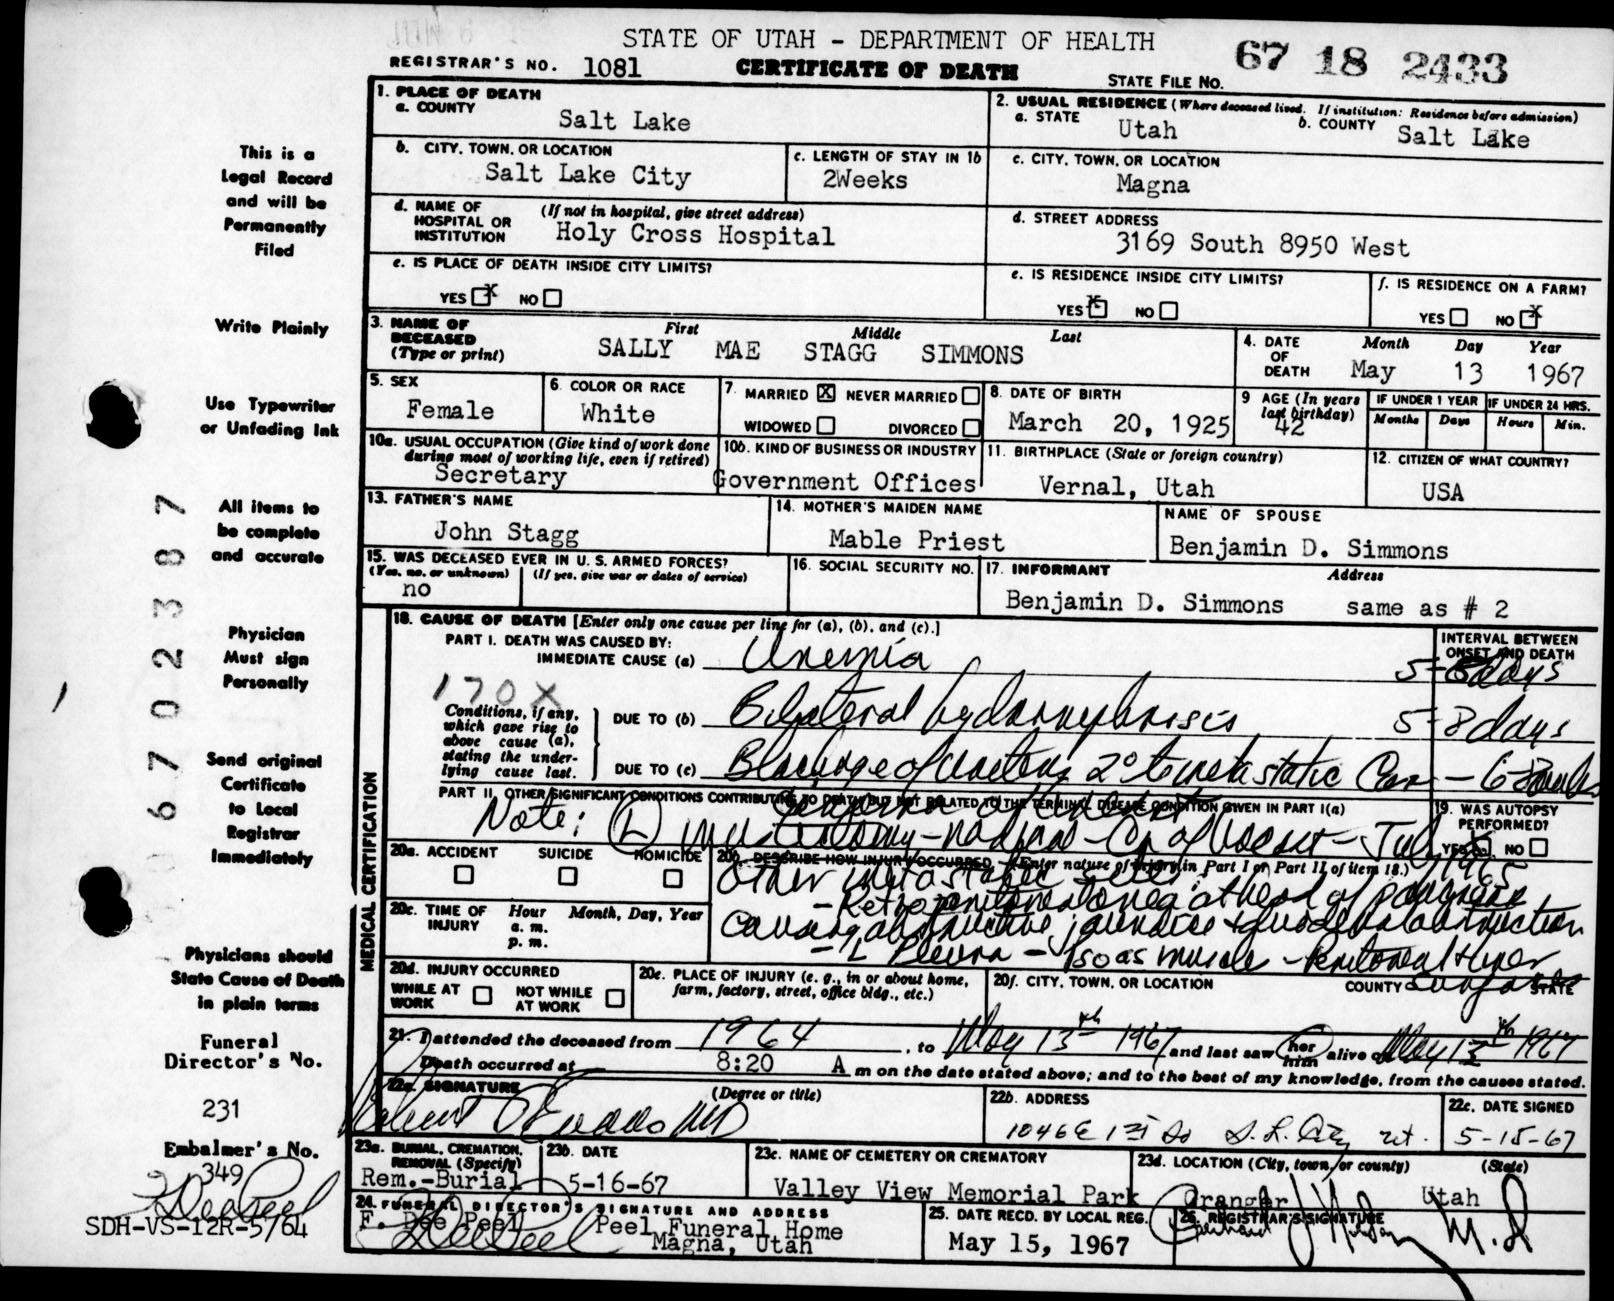 STATE OF UTAH - DEPARTMENT OF HEALTH
REGISTRAR'S NO. 1081
CERTIFICATE OF DEATH
STATE FILE NO. 67 18 2433
This is a
Legal Record
and will be
Permanently
Filed
Write Plainly
Use Typewriter
or Unfading Ink
All items to
be complete
and accurate
Physician
Must sign
Personally
Send original
Certificate
to Local
Registrar
Immediately
Physicians should
State Cause of Death
in plain terms
Funeral
Director's No.
231
Embalmer's No.
349
SDH-VS-12R-5/64
67 02387
1. PLACE OF DEATH
a. COUNTY
Salt Lake
2. USUAL RESIDENCE (Where deceased lived. If institution: Residence before admission)
a. STATE
Utah
b. COUNTY Salt Lake
b. CITY, TOWN, OR LOCATION
Salt Lake City
c. LENGTH OF STAY IN 1b
2Weeks
c. CITY, TOWN, OR LOCATION
Magna
d. NAME OF HOSPITAL OR INSTITUTION
(If not in hospital, give street address)
Holy Cross Hospital
d. STREET ADDRESS
3169 South 8950 West
e. IS PLACE OF DEATH INSIDE CITY LIMITS?
YES X NO
e. IS RESIDENCE INSIDE CITY LIMITS?
YES X NO
f. IS RESIDENCE ON A FARM?
YES NO X
3. NAME OF DECEASED
(Type or print)
First Middle Last
SALLY MAE STAGG SIMMONS
4. DATE OF DEATH
Month Day Year
May 13 1967
5. SEX
Female
6. COLOR OR RACE
White
7. MARRIED X NEVER MARRIED
WIDOWED DIVORCED
8. DATE OF BIRTH
March 20, 1925
9 AGE (In years last birthday)
42
IF UNDER 1 YEAR
Months Days
IF UNDER 24 HRS.
Hours Min.
10a. USUAL OCCUPATION (Give kind of work done during most of working life, even if retired)
Secretary
10b. KIND OF BUSINESS OR INDUSTRY
Government Offices
11. BIRTHPLACE (State or foreign country)
Vernal, Utah
12. CITIZEN OF WHAT COUNTRY?
USA
13. FATHER'S NAME
John Stagg
14. MOTHER'S MAIDEN NAME
Mable Priest
NAME OF SPOUSE
Benjamin D. Simmons
15. WAS DECEASED EVER IN U. S. ARMED FORCES?
(Yes, no, or unknown) (If yes, give war or dates of service)
no
16. SOCIAL SECURITY NO.
17. INFORMANT Address
Benjamin D. Simmons same as # 2
MEDICAL CERTIFICATION
18. CAUSE OF DEATH [Enter only one cause per line for (a), (b), and (c).]
INTERVAL BETWEEN ONSET AND DEATH
PART I. DEATH WAS CAUSED BY:
IMMEDIATE CAUSE (a) Uremia 5-8 days
170X
Conditions, if any, which gave rise to above cause (a), stating the underlying cause last.
DUE TO (b) Bilateral hydronephrosis 5-8 days
DUE TO (c) Blockage of ureters 2° to metastatic Car-
cinoma of breast
PART II. OTHER SIGNIFICANT CONDITIONS CONTRIBUTING TO DEATH BUT NOT RELATED TO THE TERMINAL DISEASE CONDITION GIVEN IN PART I(a)
Note: (L) mastectomy-radical-Ca of breast-July 1965
19. WAS AUTOPSY PERFORMED?
YES X NO
20a. ACCIDENT SUICIDE HOMICIDE
20b. DESCRIBE HOW INJURY OCCURRED. (Enter nature of injury in Part I or Part II of item 18.)
Other metastatic sites:
- Retroperitoneal area at head of pancreas
causing obstructive jaundice + duodenal obstruction
- L Pleura - Psoas muscle - Peritoneal + liver
20c. TIME OF INJURY
Hour Month, Day, Year
a. m.
p. m.
20d. INJURY OCCURRED
WHILE AT WORK NOT WHILE AT WORK
20e. PLACE OF INJURY (e. g., in or about home, farm, factory, street, office bldg., etc.)
20f. CITY, TOWN, OR LOCATION COUNTY STATE
21. I attended the deceased from 1964, to May 13th 1967 and last saw her him alive on May 13th 1967
Death occurred at 8:20 A m on the date stated above; and to the best of my knowledge, from the causes stated.
22a. SIGNATURE (Degree or title)
Evans MD
22b. ADDRESS
1046 E 1st So S. L. City Ut.
22c. DATE SIGNED
5-15-67
23a. BURIAL, CREMATION, REMOVAL (Specify)
Rem.-Burial
23b. DATE
5-16-67
23c. NAME OF CEMETERY OR CREMATORY
Valley View Memorial Park
23d. LOCATION (City, town, or county) (State)
Granger Utah
24. FUNERAL DIRECTOR'S SIGNATURE AND ADDRESS
F. Dee Peel Peel Funeral Home
Magna, Utah
25. DATE RECD. BY LOCAL REG.
May 15, 1967
26. REGISTRAR'S SIGNATURE
M.D